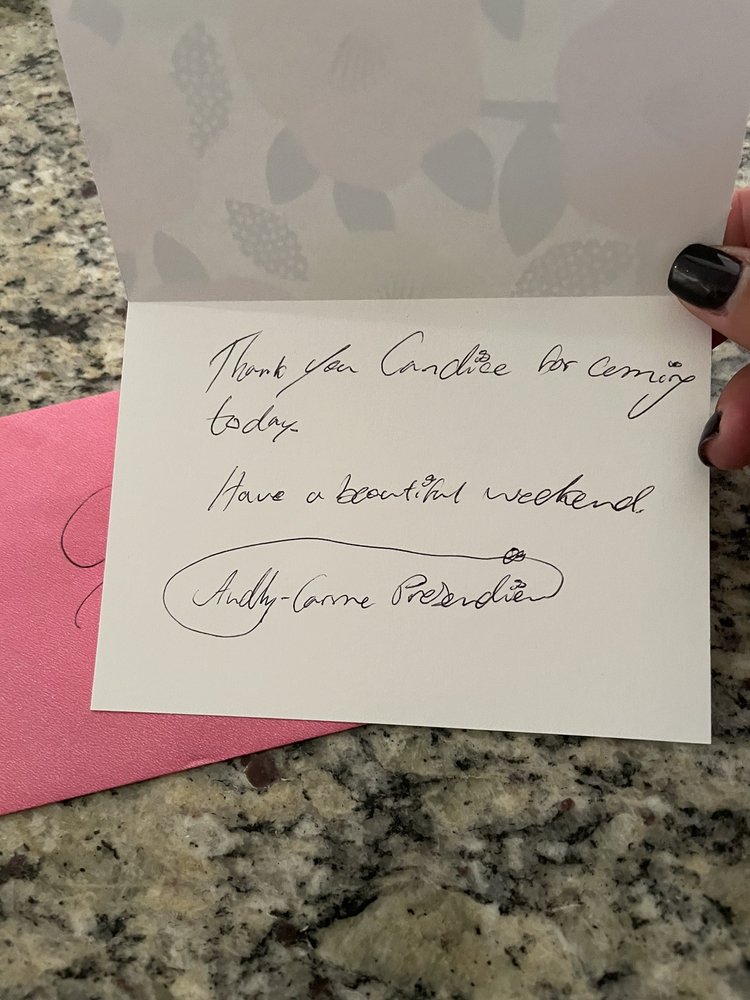 Thank you Candice for coming
today.
Have a beautiful weekend.
Andhy-Carme Prezendieu